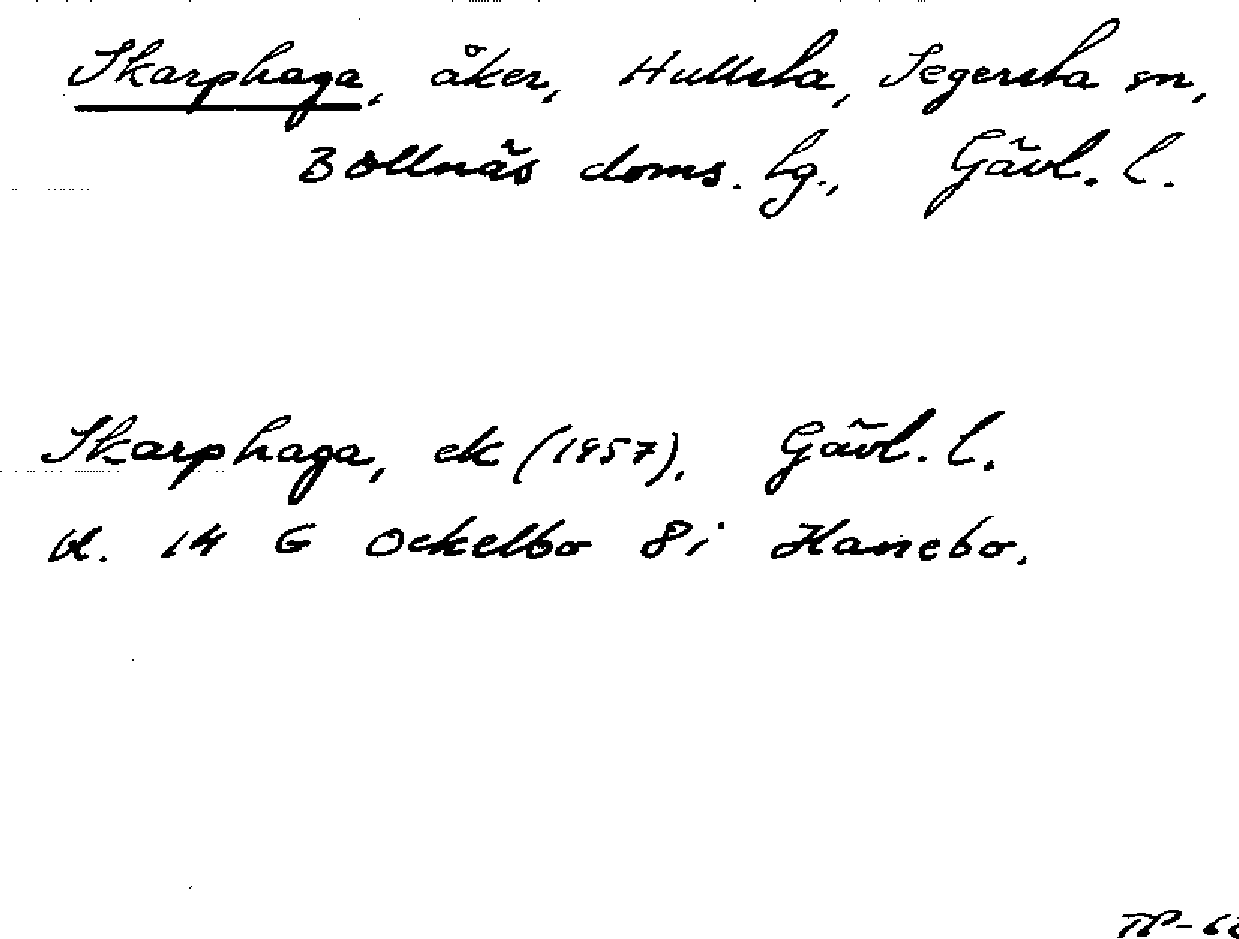 Skarphaga, åker, Hullsta, Segersta sn,
Bollnäs doms. hg., Gävl. l.
Skarphaga, ek (1957), Gävl. l.
bl. 14 G Ockelbo 8i Hanebo.